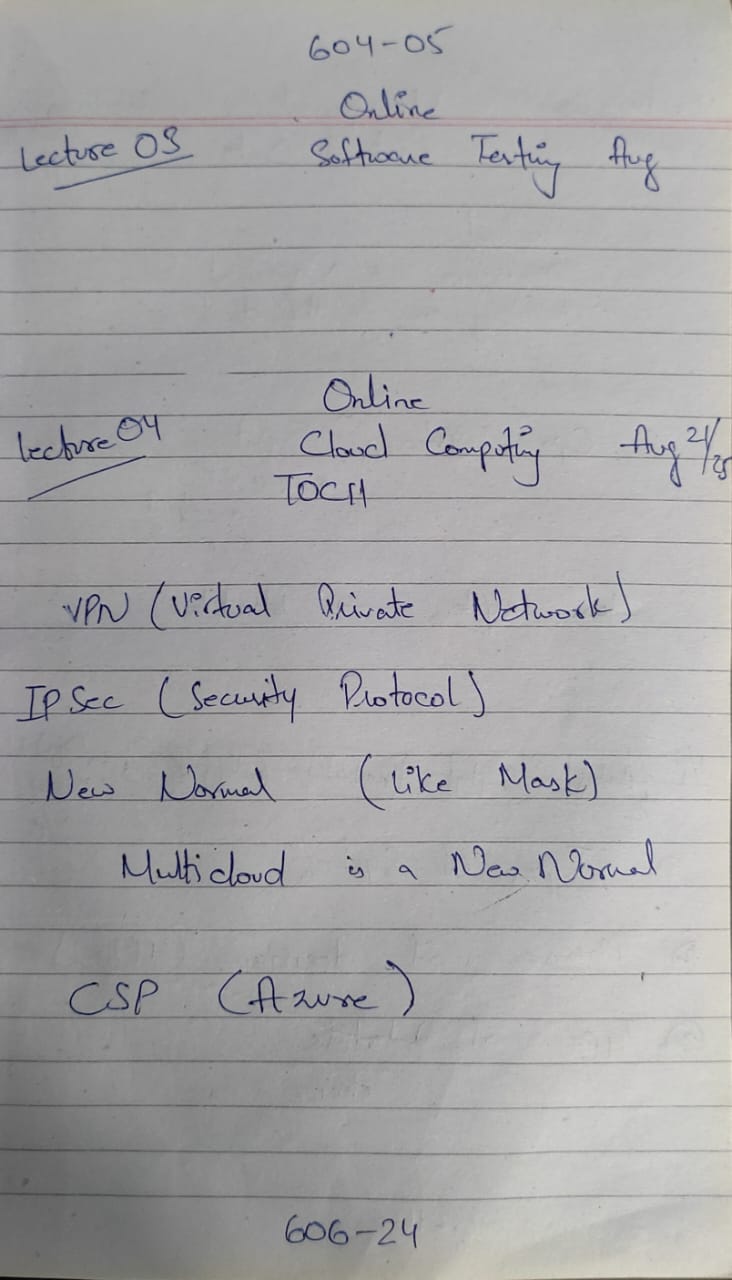 604-05
Online
Lecture 03 Software Testing Aug
Online
Lecture 04 Cloud Computing Aug 21/25
VPN (Virtual Private Network)
IP Sec (Security Protocol)
New Normal (like Mask)
Multicloud is a New Normal
CSP (Azure)
606-24